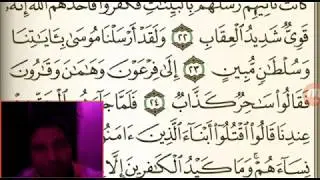 كَانَت تَّأْتِيهِمْ رُسُلُهُم بِٱلْبَيِّنَٰتِ فَكَفَرُوا۟ فَأَخَذَهُمُ ٱللَّهُ إِنَّهُۥ
قَوِىٌّ شَدِيدُ ٱلْعِقَابِ ٢٢ وَلَقَدْ أَرْسَلْنَا مُوسَىٰ بِـَٔايَٰتِنَا
وَسُلْطَٰنٍ مُّبِينٍ ٢٣ إِلَىٰ فِرْعَوْنَ وَهَٰمَٰنَ وَقَٰرُونَ
فَقَالُوا۟ سَٰحِرٌ كَذَّابٌ ٢٤ فَلَمَّا جَآءَ
عِندِنَا قَالُوا۟ ٱقْتُلُوٓا۟ أَبْنَآءَ ٱلَّذِينَ ءَامَنُوا۟
نِسَآءَهُمْ وَمَا كَيْدُ ٱلْكَٰفِرِينَ إِلَّا